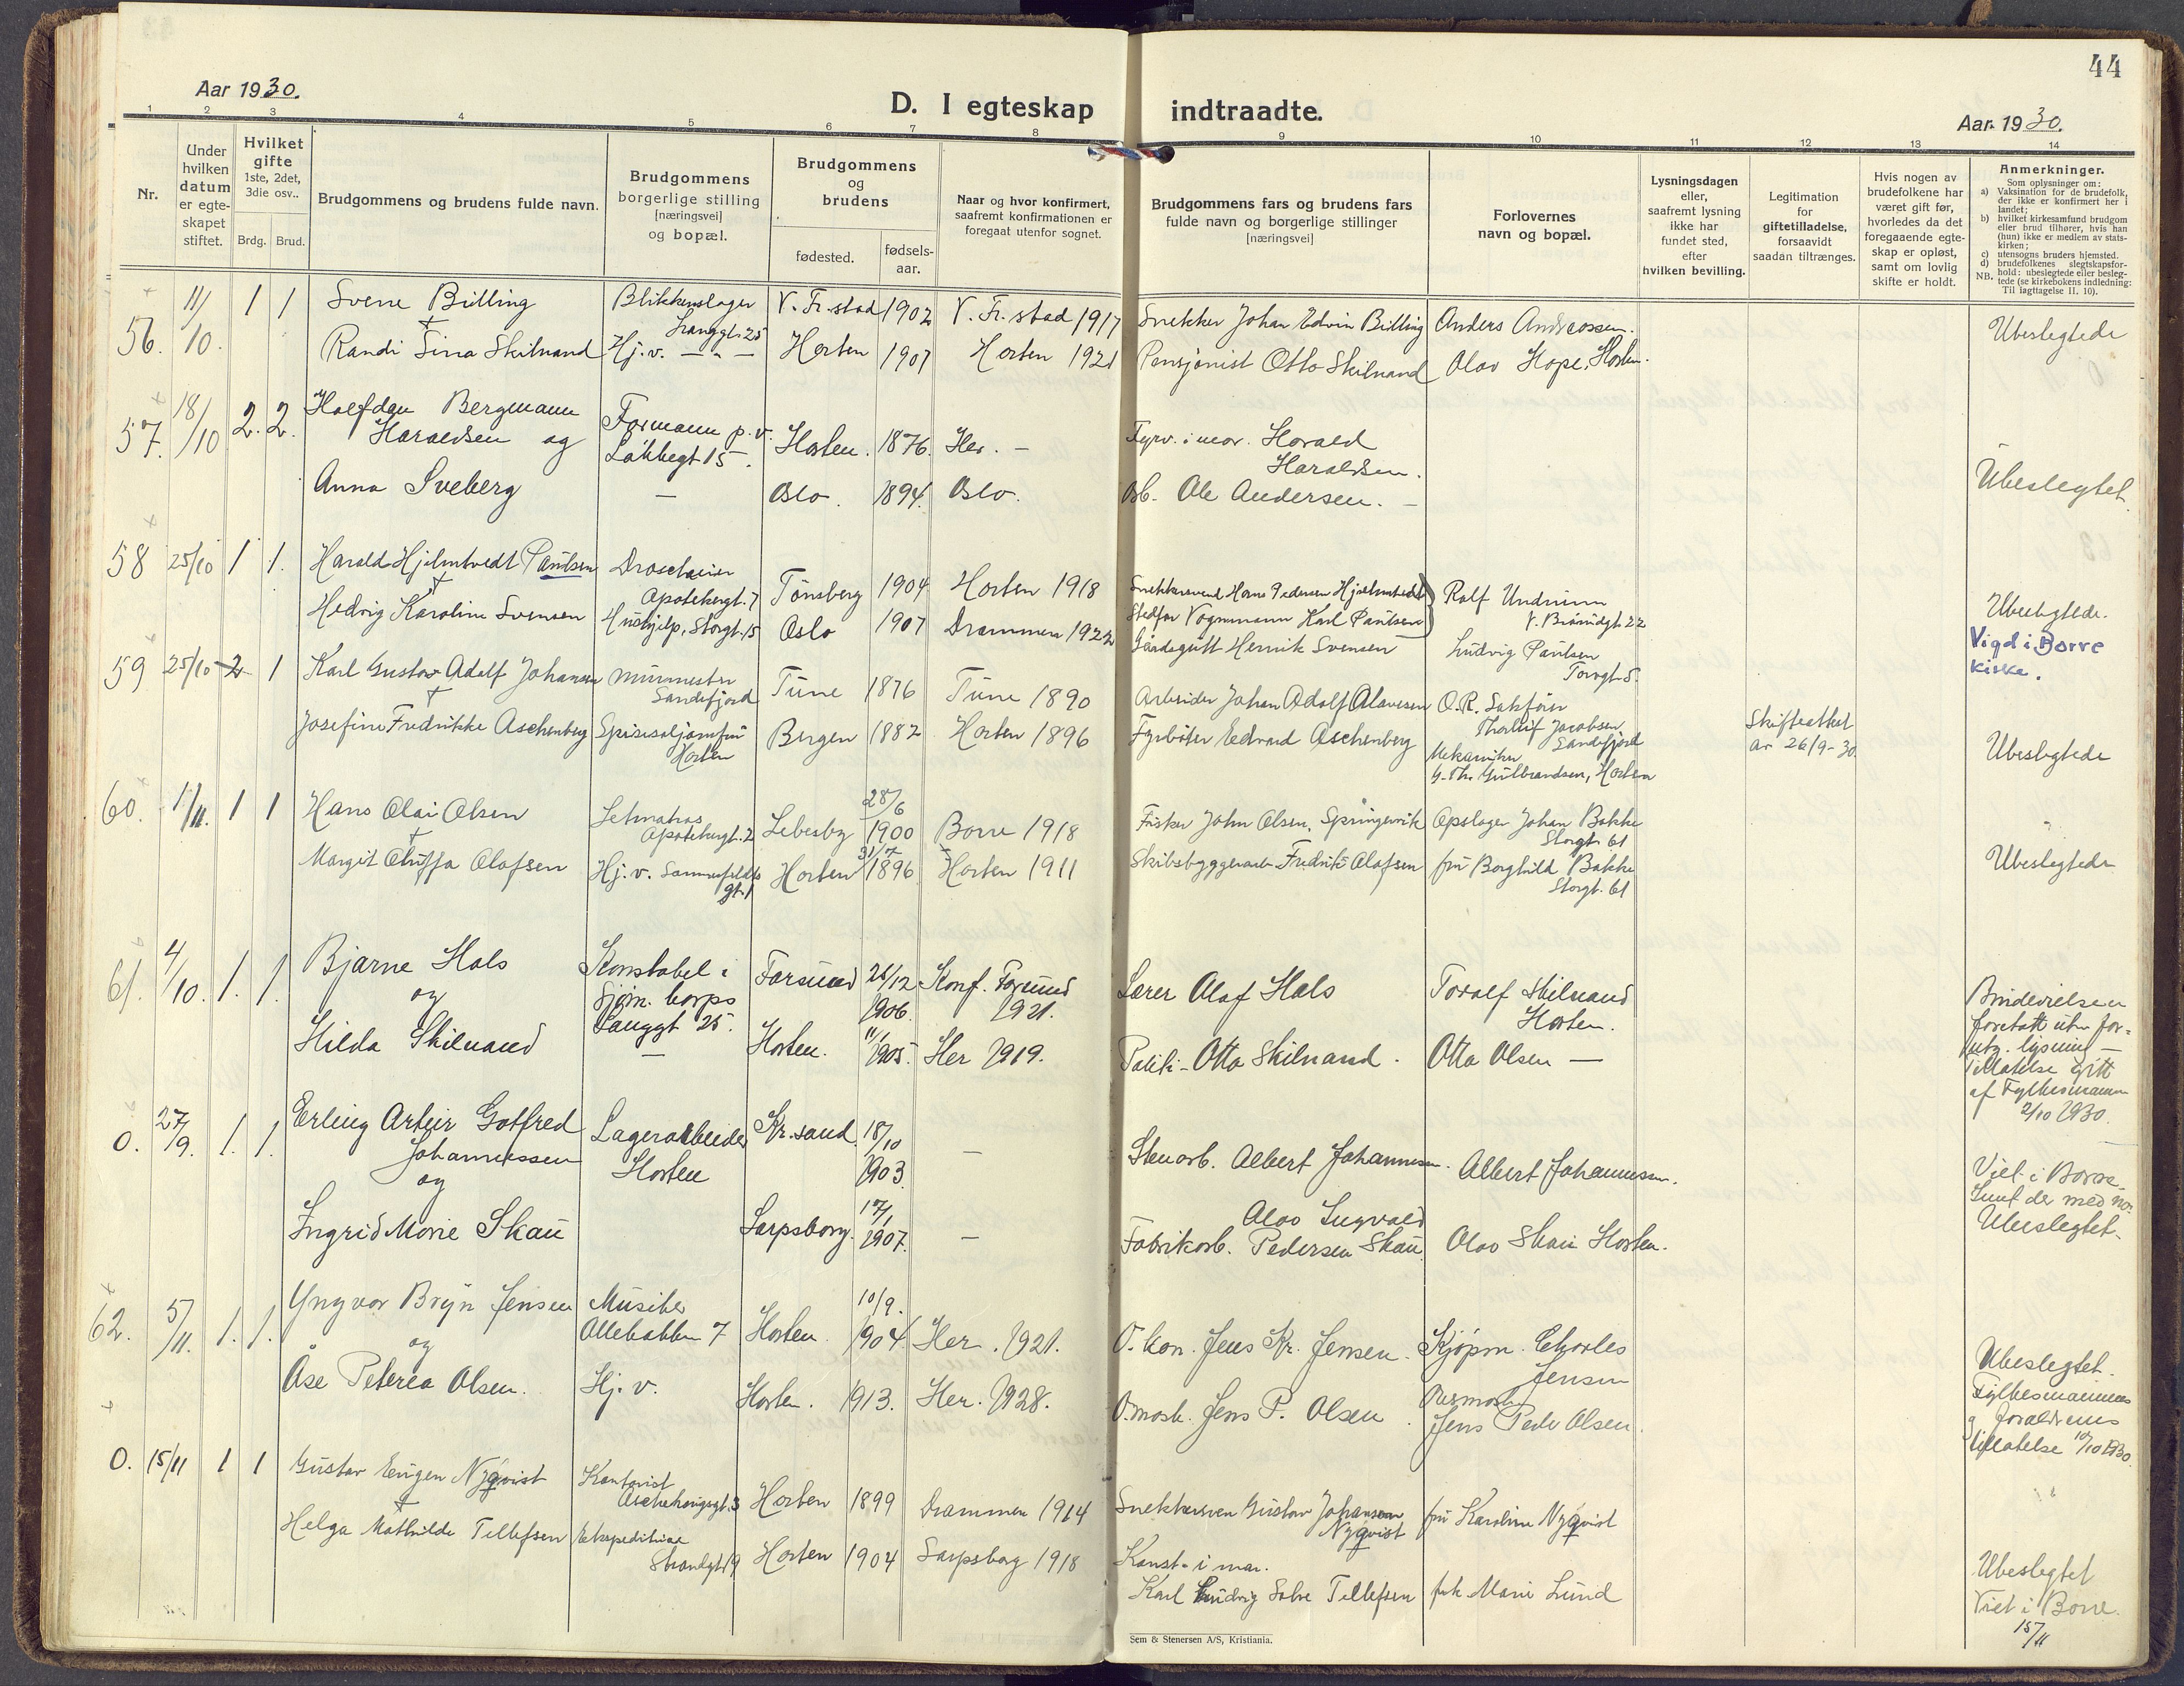 44
Aar 1930.
D. I egteskap indtraadte.
Aar 1930.
1 2 3 4 5 6 7 8 9 10 11 12 13 14
Nr.
Under hvilken datum er egte-skapet stiftet.
Hvilket gifte 1ste, 2det, 3die osv..
Brdg. Brud.
Brudgommens og brudens fulde navn.
Brudgommens borgerlige stilling [næringsvei] og bopæl.
Brudgommens og brudens
fødested. fødsels-aar.
Naar og hvor konfirmert, saafremt konfirmationen er foregaat utenfor sognet.
Brudgommens fars og brudens fars fulde navn og borgerlige stillinger [næringsvei]
Forlovernes navn og bopæl.
Lysningsdagen eller, saafremt lysning ikke har fundet sted, efter hvilken bevilling.
Legitimation for giftetilladelse, forsaavidt saadan tiltrænges.
Hvis nogen av brudefolkene har været gift før, hvorledes da det foregaaende egte-skap er opløst, samt om lovlig skifte er holdt.
Anmerkninger.
Som oplysninger om:
a) Vaksination for de brudefolk, der ikke er konfirmert her i landet;
b) hvilket kirkesamfund brudgom eller brud tilhører, hvis han (hun) ikke er medlem av stats-kirken;
c) utensogns bruders hjemsted.
d) brudefolkenes slegtskapsfor-hold: ubeslegtede eller besleg-tede (se kirkebokens indledning:
NB. Til iagttagelse II. 10).
56. 11/10. 1 1 Sverre Billing Blikkenslager Langgt. 25 V. Fr.stad 1902 V. Fr.stad 1917 Snekker Johan Edvin Billing Anders Andreassen. Ubeslegtede
Randi Sina Skilnand Hj.v. — " — Horten 1907 Horten 1921 Pensjonist Otto Skilnand Olav Hope, Horten.
57. 18/10 2. 2. Halfdan Bergmann Haraldsen og Formann p.v. Løkkegt 15 Horten. 1876. Her. — Fyrv. i mar. Harald Haraldsen. Ubeslegtet
Anna Sveberg — Oslo. 1894. Oslo. Arb. Ole Andersen. —
58 25/10 1 1. Harald Hjelmtvedt Paulsen Apotekergt. 7 Tønsberg 1904 Horten 1918 Snekkersvend Hans Pedersen Stedfar Vognmann Karl Paulsen Ralf Undrum Ubeslegtede.
Hedvig Karoline Svensen Hushjelp, Storgt. 15 Oslo 1907 Drammen 1922 Gårdsgutt Henrik Svensen Ludvig Paulsen Torvgt. 5. Vigd i Borre kirke.
59 25/10 2 1 Karl Gustav Adolf Johansen Murmester Sandefjord Tune 1876 Tune 1890 Arbeider Johan Adolf O.R. Sakfører Thorleif Jacobsen Sandefjord Skifteattest av 26/9-30. Ubeslegtede
Josefine Fredrikke Aschenberg Spisesaljomfru Horten Bergen 1882 Horten 1896 Fyrbøter Edvard Aschenberg Mekaniker G. Th. Gulbrandsen, Horten
60. 1/11. 1 1 Hans Olai Olsen Letmatros Apotekergt. 2 Lebesby 28/6 1900 Borre 1918 Fisker John Olsen, Springervik Opslager Johan Bakke Storgt. 61 Ubeslegtede
Margit Oluffa Olafsen Hj.v. gt. 1 Horten 31/7 1896 Horten 1911 Skibsbyggerarb. Fredrik Olafsen fru Borghild Bakke Storgt. 61
61. 4/10. 1. 1. Bjarne Hals og Konstabel i Sjøm. korps Langgt 25. Farsund 26/12 1906. Konf. Farsund 1921. Lærer Olaf Hals Toralf Skilnand Horten.
Hilda Skilnand — Horten. 1905. Her 1919. Politi- Otto Skilnand. Otto Olsen —
lysning — Tillatelse gitt af Fylkesmannen 2/10 1930.
0. 27/9. 1. 1. Erling Artur Gotfred Johannessen og Lagerarbeider Horten Kr.sand. 18/10 1903. — Stenarb. Albert Johannessen. Albert Johannessen. Viet i Borre.
Ingrid Marie Skau Sarpsborg. 17/1 1907. — Fabrikarb. Olav Ingvald Pedersen Skau Olav Skau Horten. Ubeslegtet.
62. 5/11. 1. 1. Yngvar Bryn Jensen og Musiker Ollebakken 7 Horten. 10/9. 1904 Her. 1921. O. kan. Jens Kr. Jensen. Kjøpm. Charles Jensen Ubeslegtet.
Åse Peterea Olsen. Hj.v. Horten. 1913. Her. 1928. O.mask. Jens P. Olsen. Overmask. Jens Peder Olsen. Fylkesmannens og foreldrenes tillatelse 10/10 1930.
0. 15/11 1 1 Gustav Eugen Nyqvist Kontorist 3 Horten 1899 Drammen 1914 Snekkersven Gustav Johansson Nyqvist fru Karoline Nyqvist
Helga Mathilde Tellefsen Strandgt. 19 Horten 1904 Sarpsborg 1918 Konst. i mar. Karl Ludvig Salve Tellefsen frk Marie Lund Ubeslegtet Viet i Borre. 15/11
Sem & Stenersen A/S, Kristiania.